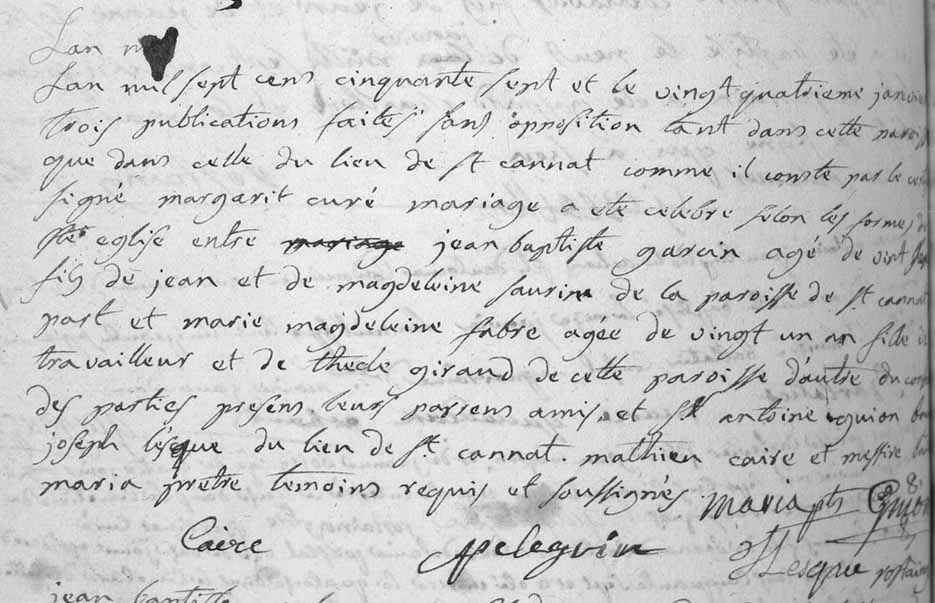 Lan m
Lan mil sept cens cinquante sept et le vingt quatrieme janvie
trois publications faites sans opposition tant dans cette paroi
que dans celle du lieu de st cannat comme il conste par le cer
signé margarit curé mariage a ete celebre selon les formes d
ste eglise entre mariage jean baptiste garcin agé de vint sept
fils de jean et de magdeleine saurine de la paroisse de st cannat
part et marie magdeleine fabre agée de vingt un an fille
travailleur et de thecle giraud de cette paroisse d'autre du cons
des parties presens leurs parrens amis et sr antoine guion
joseph lesque du lieu de st. cannat. mathieu caire et messire
maria pretre temoins requis et soussignés maria ptre Guion
Caire pelegrin JLesque rostaing
jean baptiste